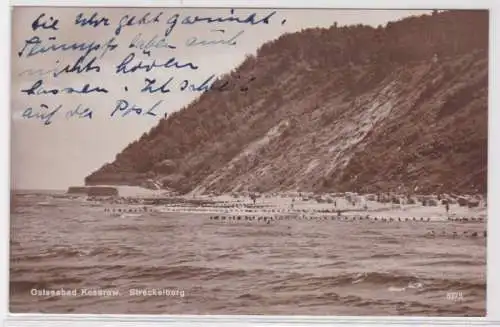 Die Uhr geht garnicht.
Strümpfe haben auch
nichts hören
lassen. Ich sch
auf die Post
Ostseebad Koserow. Streckelberg